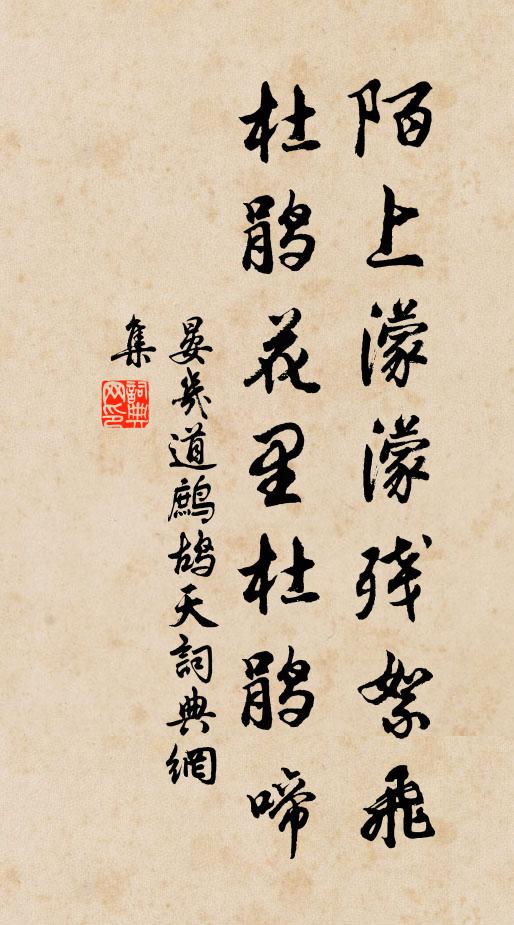 陌上濛濛残絮飛
杜鹃花里杜鹃啼
晏幾道鷓鴣天詞典網
集
詞典網印